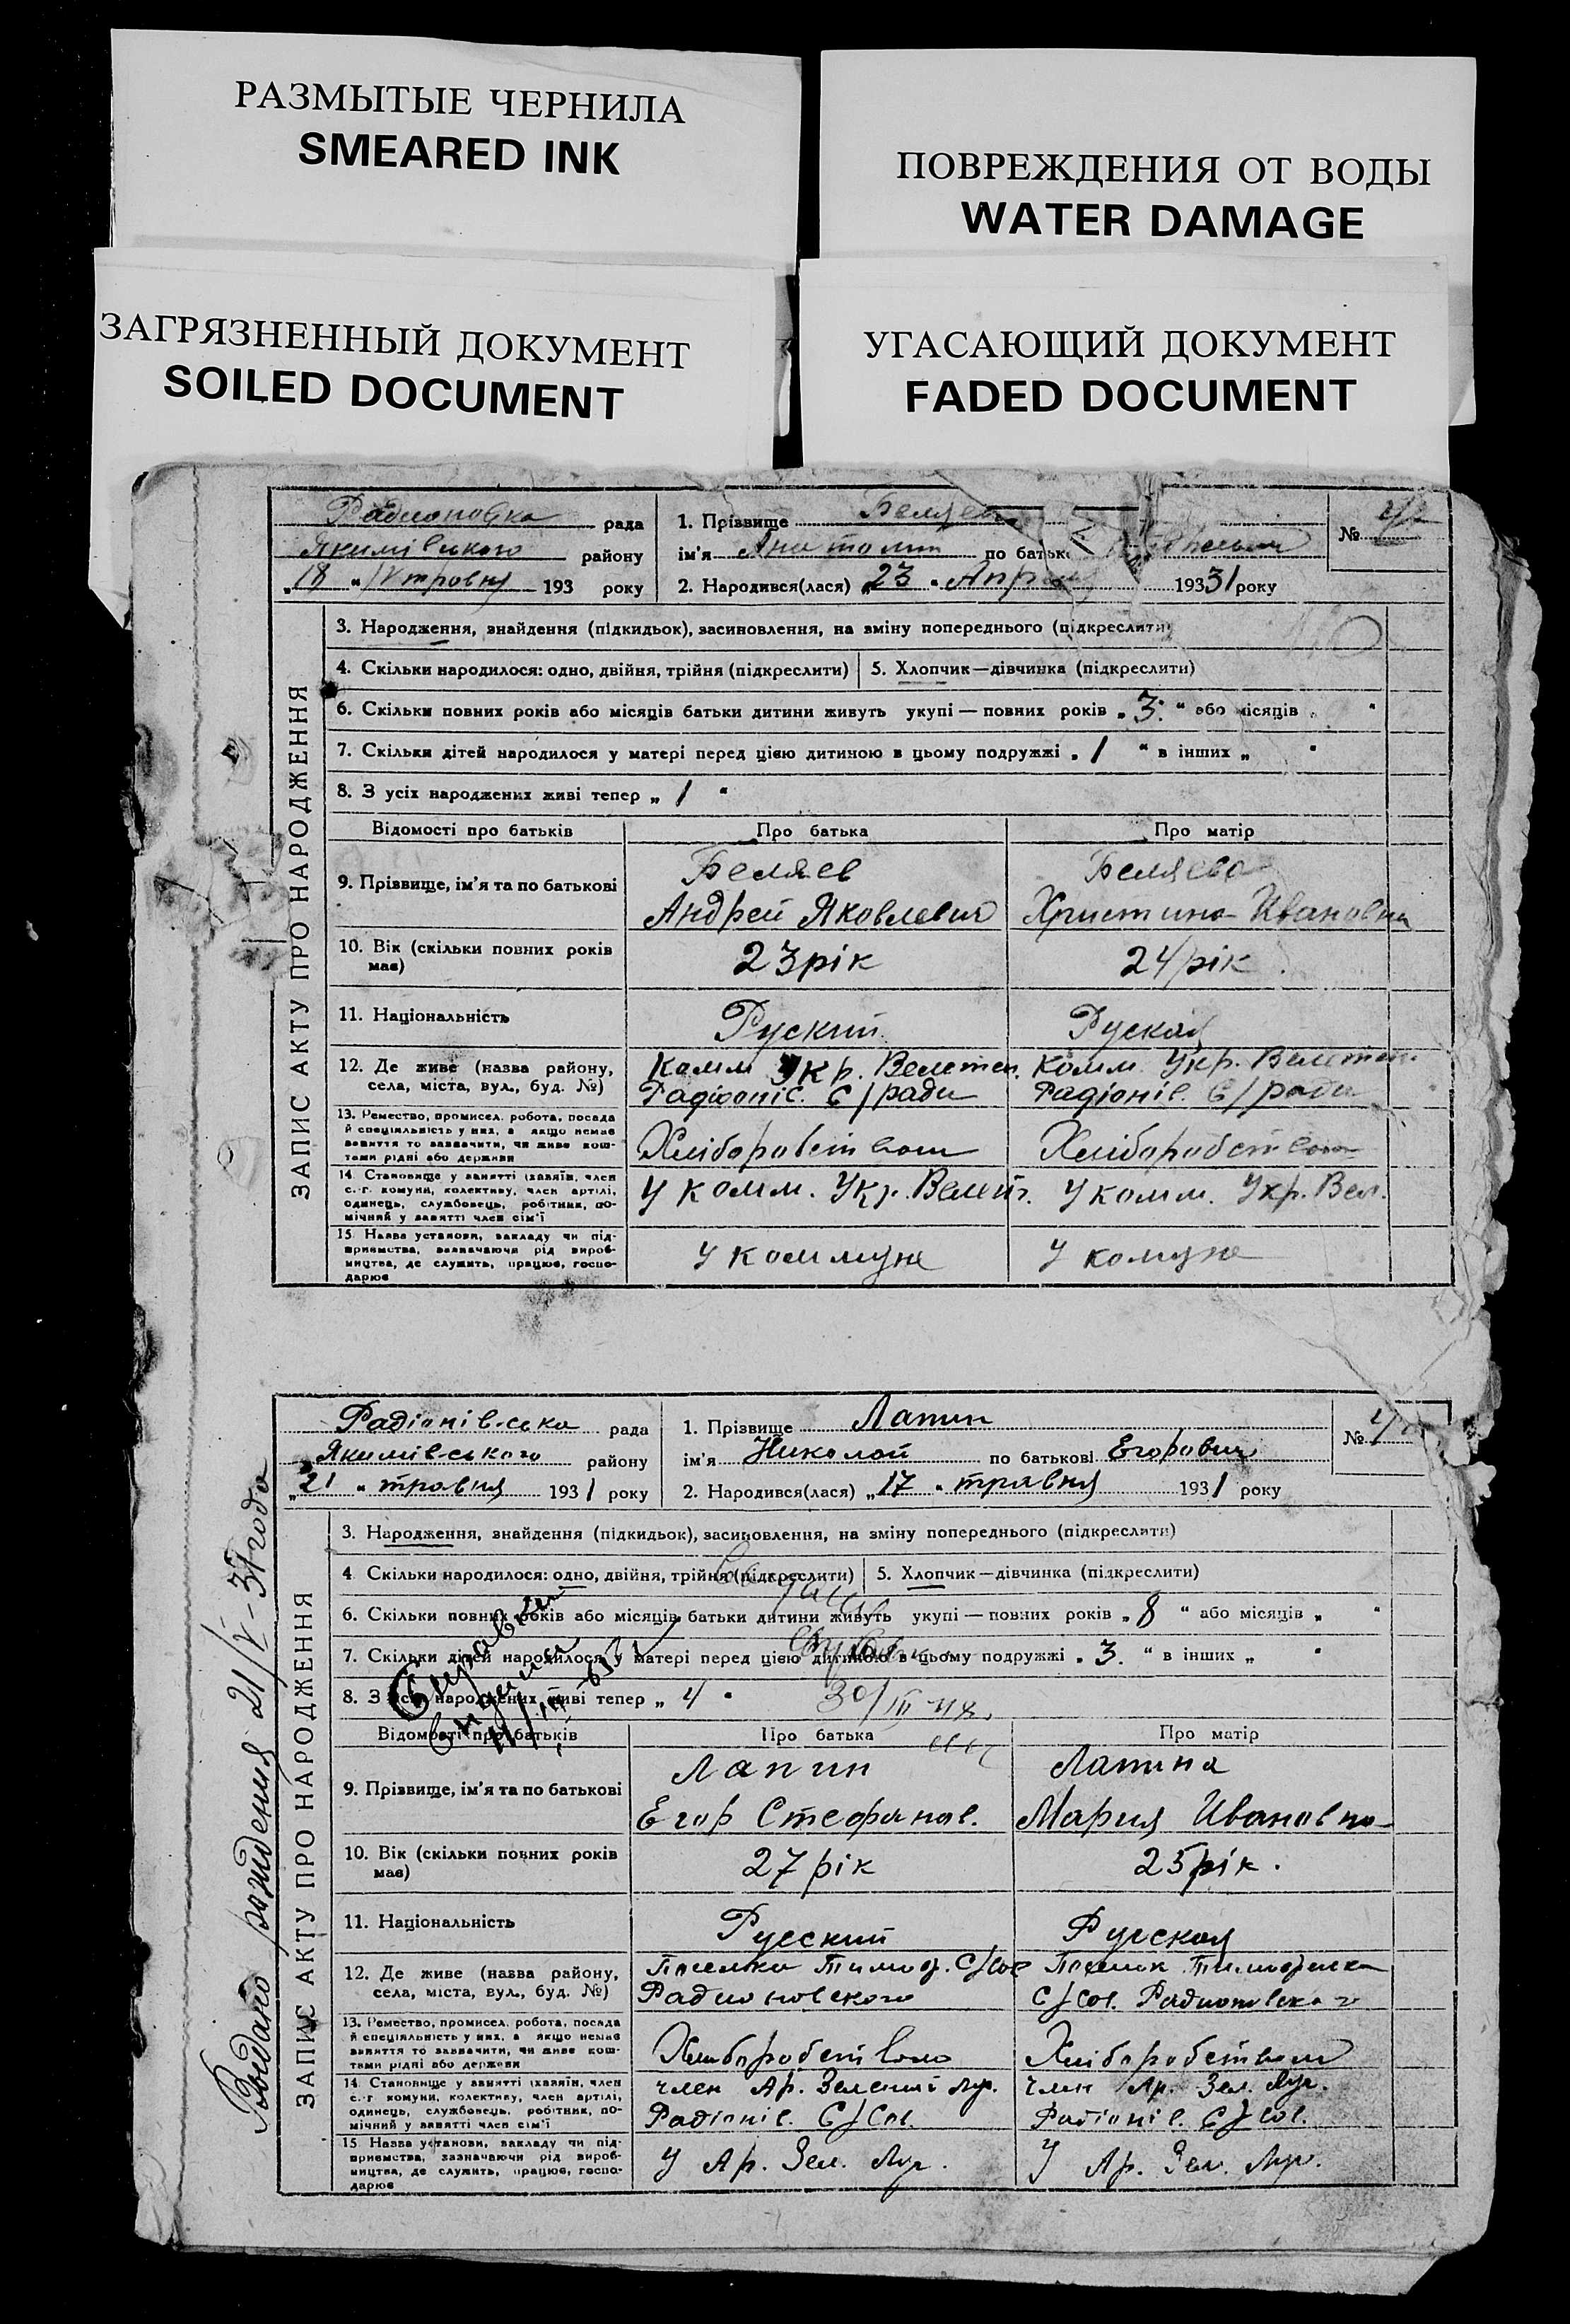 РАЗМЫТЫЕ ЧЕРНИЛА
SMEARED INK
ПОВРЕЖДЕНИЯ ОТ ВОДЫ
WATER DAMAGE
ЗАГРЯЗНЕННЫЙ ДОКУМЕНТ
SOILED DOCUMENT
УГАСАЮЩИЙ ДОКУМЕНТ
FADED DOCUMENT
ЗАПИС АКТУ ПРО НАРОДЖЕННЯ
рада
Якимівського району
"18" травня 193 року
1. Прізвище Беляев
ім'я Анатолий по батьк
2. Народився(лася) "23" Апреля 1931 року
№
3. Народження, знайдення (підкидьок), засиновлення, на зміну попереднього (підкреслити)
4. Скільки народилося: одно, двійня, трійня (підкреслити)
5. Хлопчик—дівчинка (підкреслити)
6. Скільки повних років або місяців батьки дитини живуть укупі — повних років „3" або місяців „ "
7. Скільки дітей народилося у матері перед цією дитиною в цьому подружжі „1" в інших „ "
8. З усіх народжених живі тепер „1"
Відомості про батьків Про батька Про матір
9. Прізвище, ім'я та по батькові
Беляев
Андрей Яковлевич
Беляева
Христина Ивановна
10. Вік (скільки повних років має)
23 рік
24 рік
11. Національність
Руский
Руская
12. Де живе (назва району, села, міста, вул., буд. №)
Комм Укр. Велетен.
Радіоніс. С/ради
Комм. Укр. Велетен.
Радіонів. С/ради
13. Ремество, промисел, робота, посада й спеціяльність у них, а якщо немає заняття то зазначити, чи живе коштами рідні або держави
Хліборобством
Хліборобством
14. Становище у занятті (хазяїн, член с.-г. комуни, колективу, член артілі, одинець, службовець, робітник, помічний у занятті член сім'ї
У комм. Укр. Велет.
У комм. Укр. Вел.
15. Назва установи, закладу чи підприємства, зазначаючи рід виробництва, де служить, працює, господарює
У коммуне
У комуне
Выдано рождения 21/V-31 года
ЗАПИС АКТУ ПРО НАРОДЖЕННЯ
Радіонівсько рада
Якимівського району
"21" травня 1931 року
1. Прізвище Лапин
ім'я Николай по батькові Егорович
2. Народився(лася) „17" травня 1931 року
№
3. Народження, знайдення (підкидьок), засиновлення, на зміну попереднього (підкреслити)
4 Скільки народилося: одно, двійня, трійня (підкреслити)
5. Хлопчик—дівчинка (підкреслити)
6. Скільки повних років або місяців батьки дитини живуть укупі — повних років „8" або місяців „ "
7. Скільки дітей народилося у матері перед цією дитиною в цьому подружжі „3." в інших „ "
8. З усіх народжених живі тепер „4"
30/III-48.
Відомості про батьків Про батька Про матір
9. Прізвище, ім'я та по батькові
Лапин
Егор Стефанов.
Лапина
Мария Ивановна
10. Вік (скільки повних років має)
27 рік
25 рік.
11. Національність
Русский
Русская
12. Де живе (назва району, села, міста, вул., буд. №)
Радионовского
С/Сов.
13. Ремество, промисел, робота, посада й спеціяльність у них, а якщо немає заняття то зазначити, чи живе коштами рідні або держави
Хліборобством
Хліборобством
14. Становище у занятті (хазяїн, член с.-г. комуни, колективу, член артілі, одинець, службовець, робітник, помічний у занятті член сім'ї
член Ар. Зелений Луг.
Радіонів. С/Сов.
член Ар. Зел. Луг.
Радіонів. С/Сов.
15. Назва установи, закладу чи підприємства, зазначаючи рід виробництва, де служить, працює, господарює
У Ар. Зел. Луг.
У Ар. Зел. Луг.